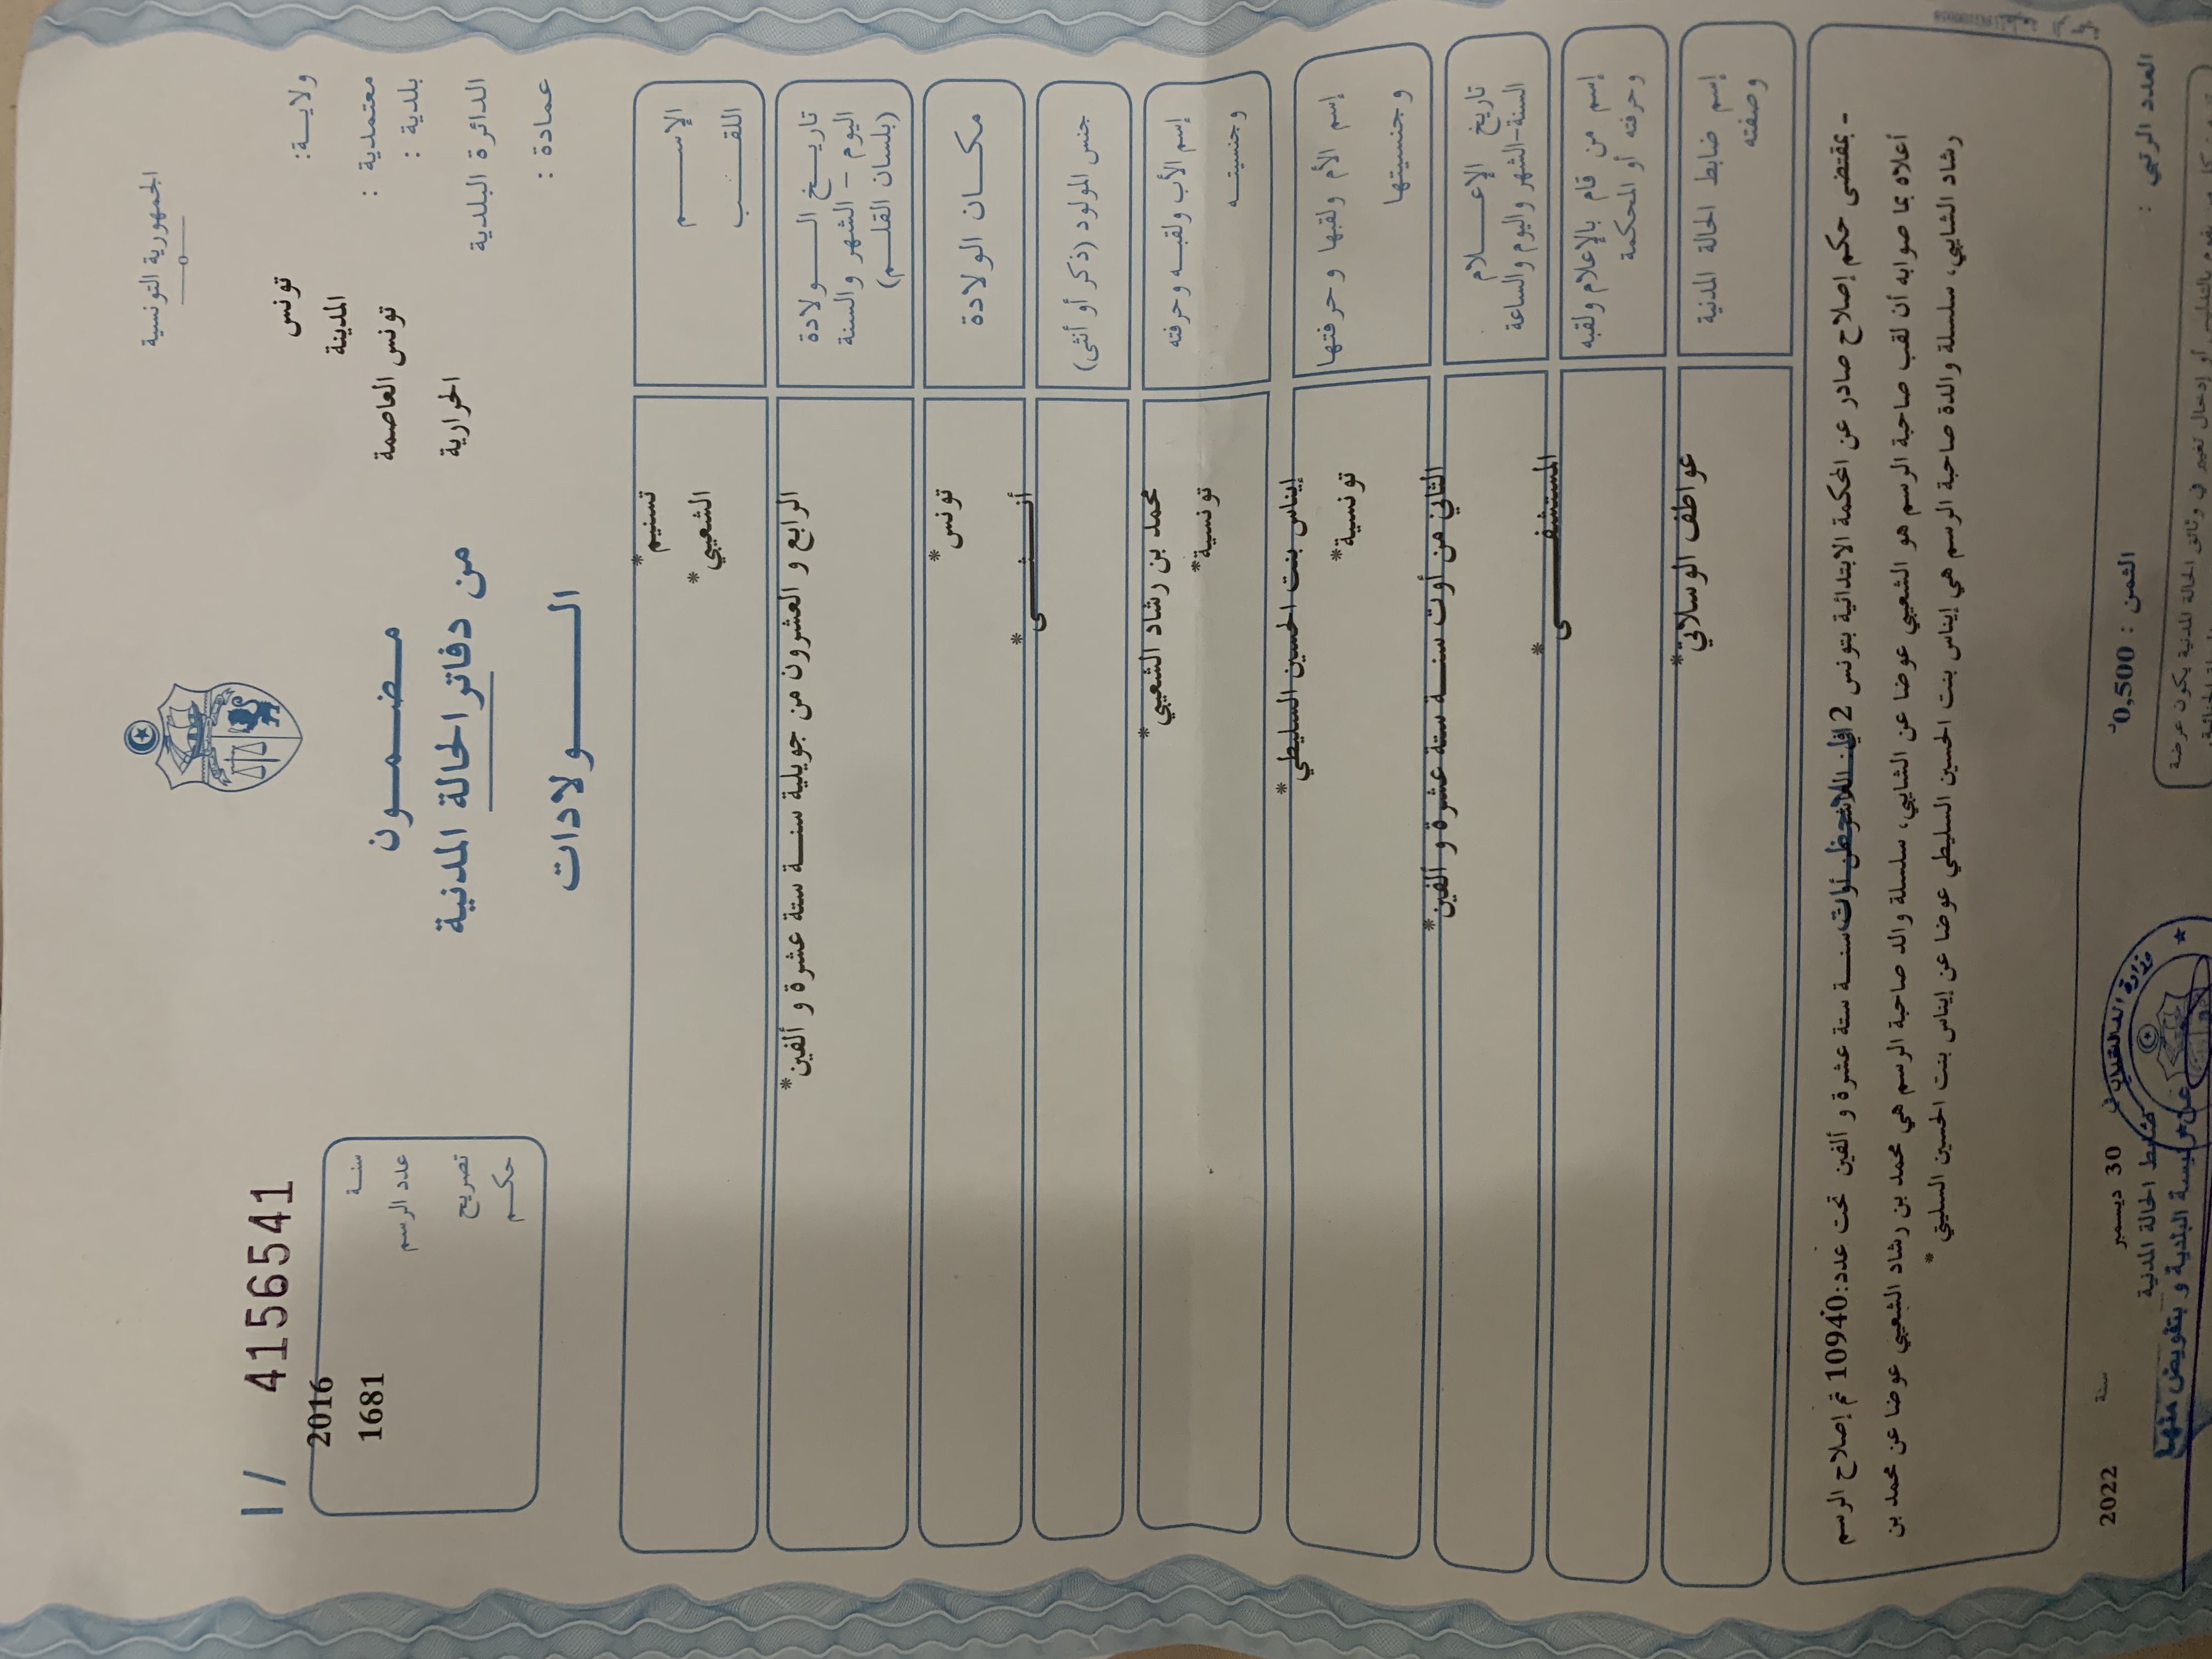 الجمهورية التونسية
I / 4156541
ولايــة: تونس
معتمدية : المدينة
بلدية : تونس العاصمة
الدائرة البلدية الحرارية
عمادة :
مضمــون
من دفاتر الحالة المدنية
الــولادات
سنــة 2016
عدد الرسم 1681
تصريح
حكــم
الإســـم تسنيم*
اللقــب الشعيبي*
تاريــخ الــولادة
اليوم - الشهر والسنة
(بلسان القلــم)
الرابع و العشرون من جويلية سنــة ستة عشرة و ألفين*
مكــان الولادة تونس*
جنس المولود (ذكر أو أنثى) أنــثــى*
إسم الأب ولقبــه وحرفته محمد بن رشاد الشعيبي*
وجنسيتــه تونسية*
إسم الأم ولقبها وحرفتها إيناس بنت الحسين السليطي*
وجنسيتها تونسية*
تاريخ الإعــلام
السنة-الشهر واليوم والساعة
الثاني من أوت سنــة ستة عشرة و ألفين*
إسم من قام بالإعلام ولقبه
وحرفته أو المحكمة
المستشفــى*
إسم ضابط الحالة المدنية
وصفته
عواطف الوسلاتي*
- بمقتضى حكم إصلاح صادر عن المحكمة الابتدائية بتونس 2 أوت سنــة ستة عشرة و ألفين تحت عدد:10940 تم إصلاح الرسم
أعلاه بما صوابه أن لقب صاحبة الرسم هو الشعيبي عوضا عن الشايبي، سلسلة والد صاحبة الرسم هي محمد بن رشاد الشعيبي عوضا عن محمد بن
رشاد الشايبي، سلسلة والدة صاحبة الرسم هي إيناس بنت الحسين السليطي عوضا عن إيناس بنت الحسين السليتي *
العدد الرتبي :
الثمن : 0,500
30 ديسمبر سنة 2022
ضابط الحالة المدنية
عن رئيسة البلدية و بتفويض منها